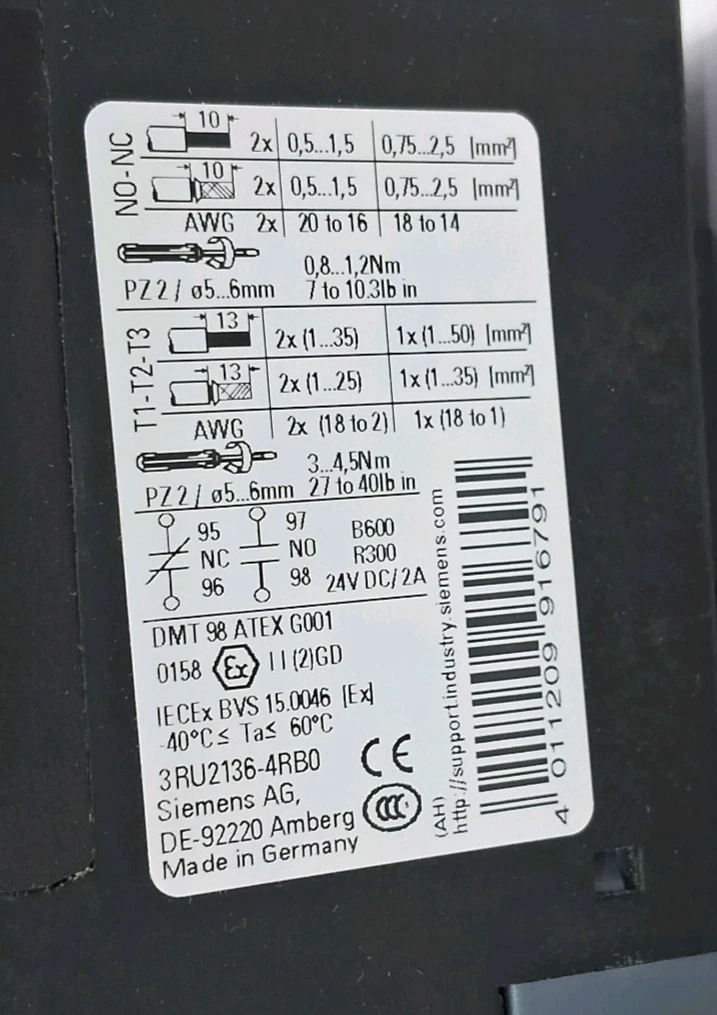 NO-NC
10
2x 0,5...1,5 0,75...2,5 [mm²]
10
2x 0,5...1,5 0,75...2,5 [mm²]
AWG 2x 20 to 16 18 to 14
0,8...1,2Nm
PZ 2 / ø5...6mm 7 to 10.3lb in
T1-T2-T3
13
2x (1...35) 1x (1...50) [mm²]
13
2x (1...25) 1x (1...35) [mm²]
AWG 2x (18 to 2) 1x (18 to 1)
3...4,5Nm
PZ 2 / ø5...6mm 27 to 40lb in
95 97 B600
NC NO R300
96 98 24V DC/2A
DMT 98 ATEX G001
0158 Ex II(2)GD
IECEx BVS 15.0046 [Ex]
-40°C≤ Ta≤ 60°C
3RU2136-4RB0 CE
Siemens AG, CCC
DE-92220 Amberg
Made in Germany
(AH)
http://support.industry.siemens.com
4 011209 916791